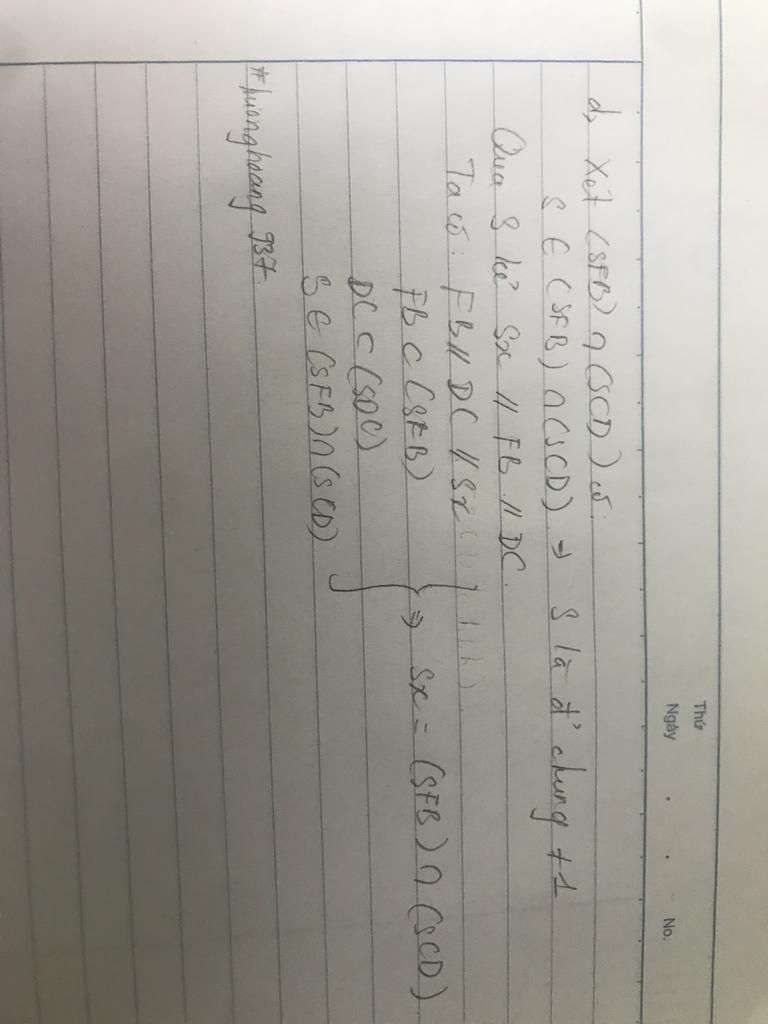 Thứ
Ngày . . No.
d, Xét (SFB) ∩ (SCD) có:
S ∈ (SFB) ∩ (SCD) ⇒ S là đ' chung t1
Qua S kẻ Sx // FB // DC.
Ta có: FB // DC // Sx
FB ⊂ (SFB)
DC ⊂ (SDC)
S ∈ (SFB) ∩ (SCD)
⇒ Sx = (SFB) ∩ (SCD)
#phuonghoang937.